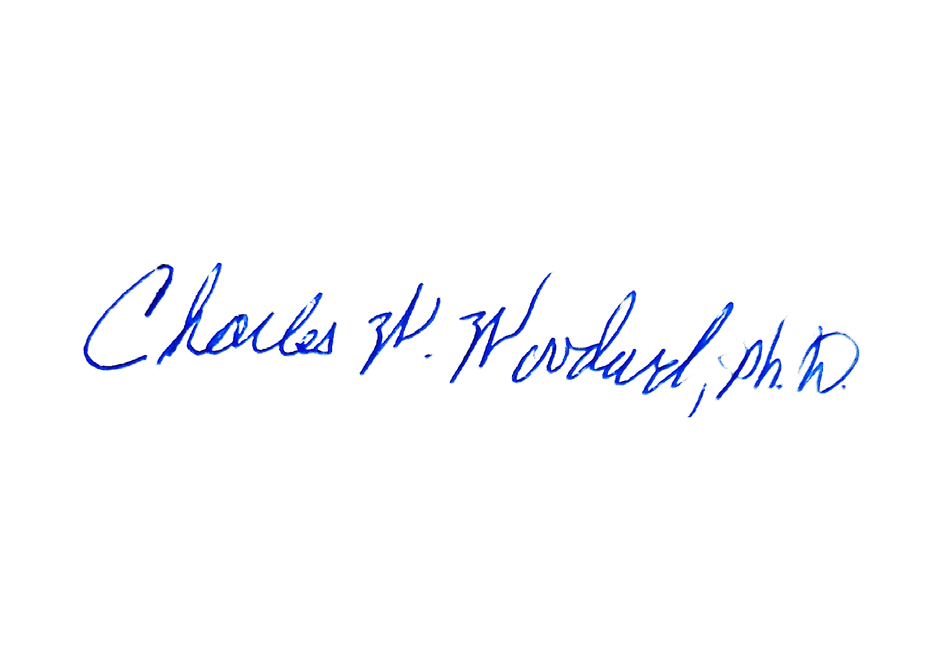 Charles W. Woodard, Ph.D.